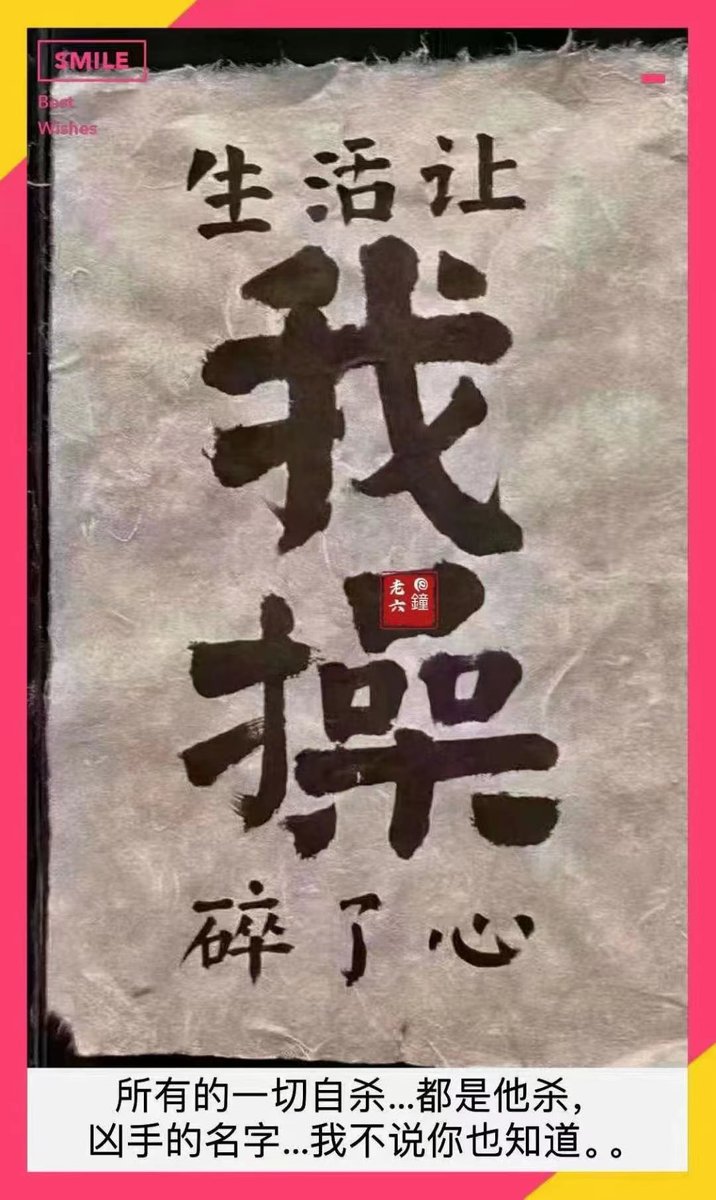 SMILE
Best
Wishes
生活让
我
操
老六
鐘
碎了心
所有的一切自杀...都是他杀，
凶手的名字...我不说你也知道。。